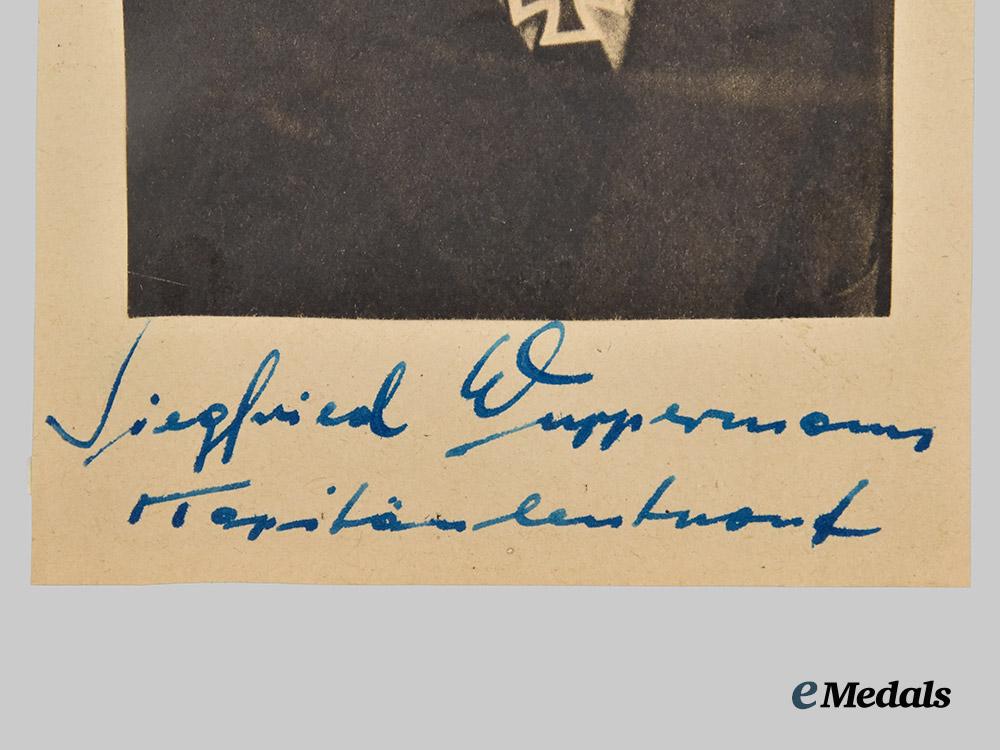 Siegfried Wuppermann
Kapitänleutnant
eMedals